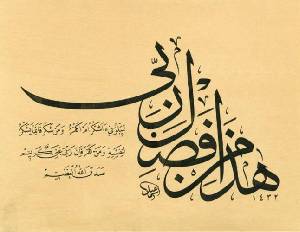 هذا من فضل ربي
ليبلوني ءأشكر أم أكفر ومن شكر فإنما يشكر
لنفسه ومن كفر فإن ربي غني كريم
صدق الله العظيم
١٤٣٢